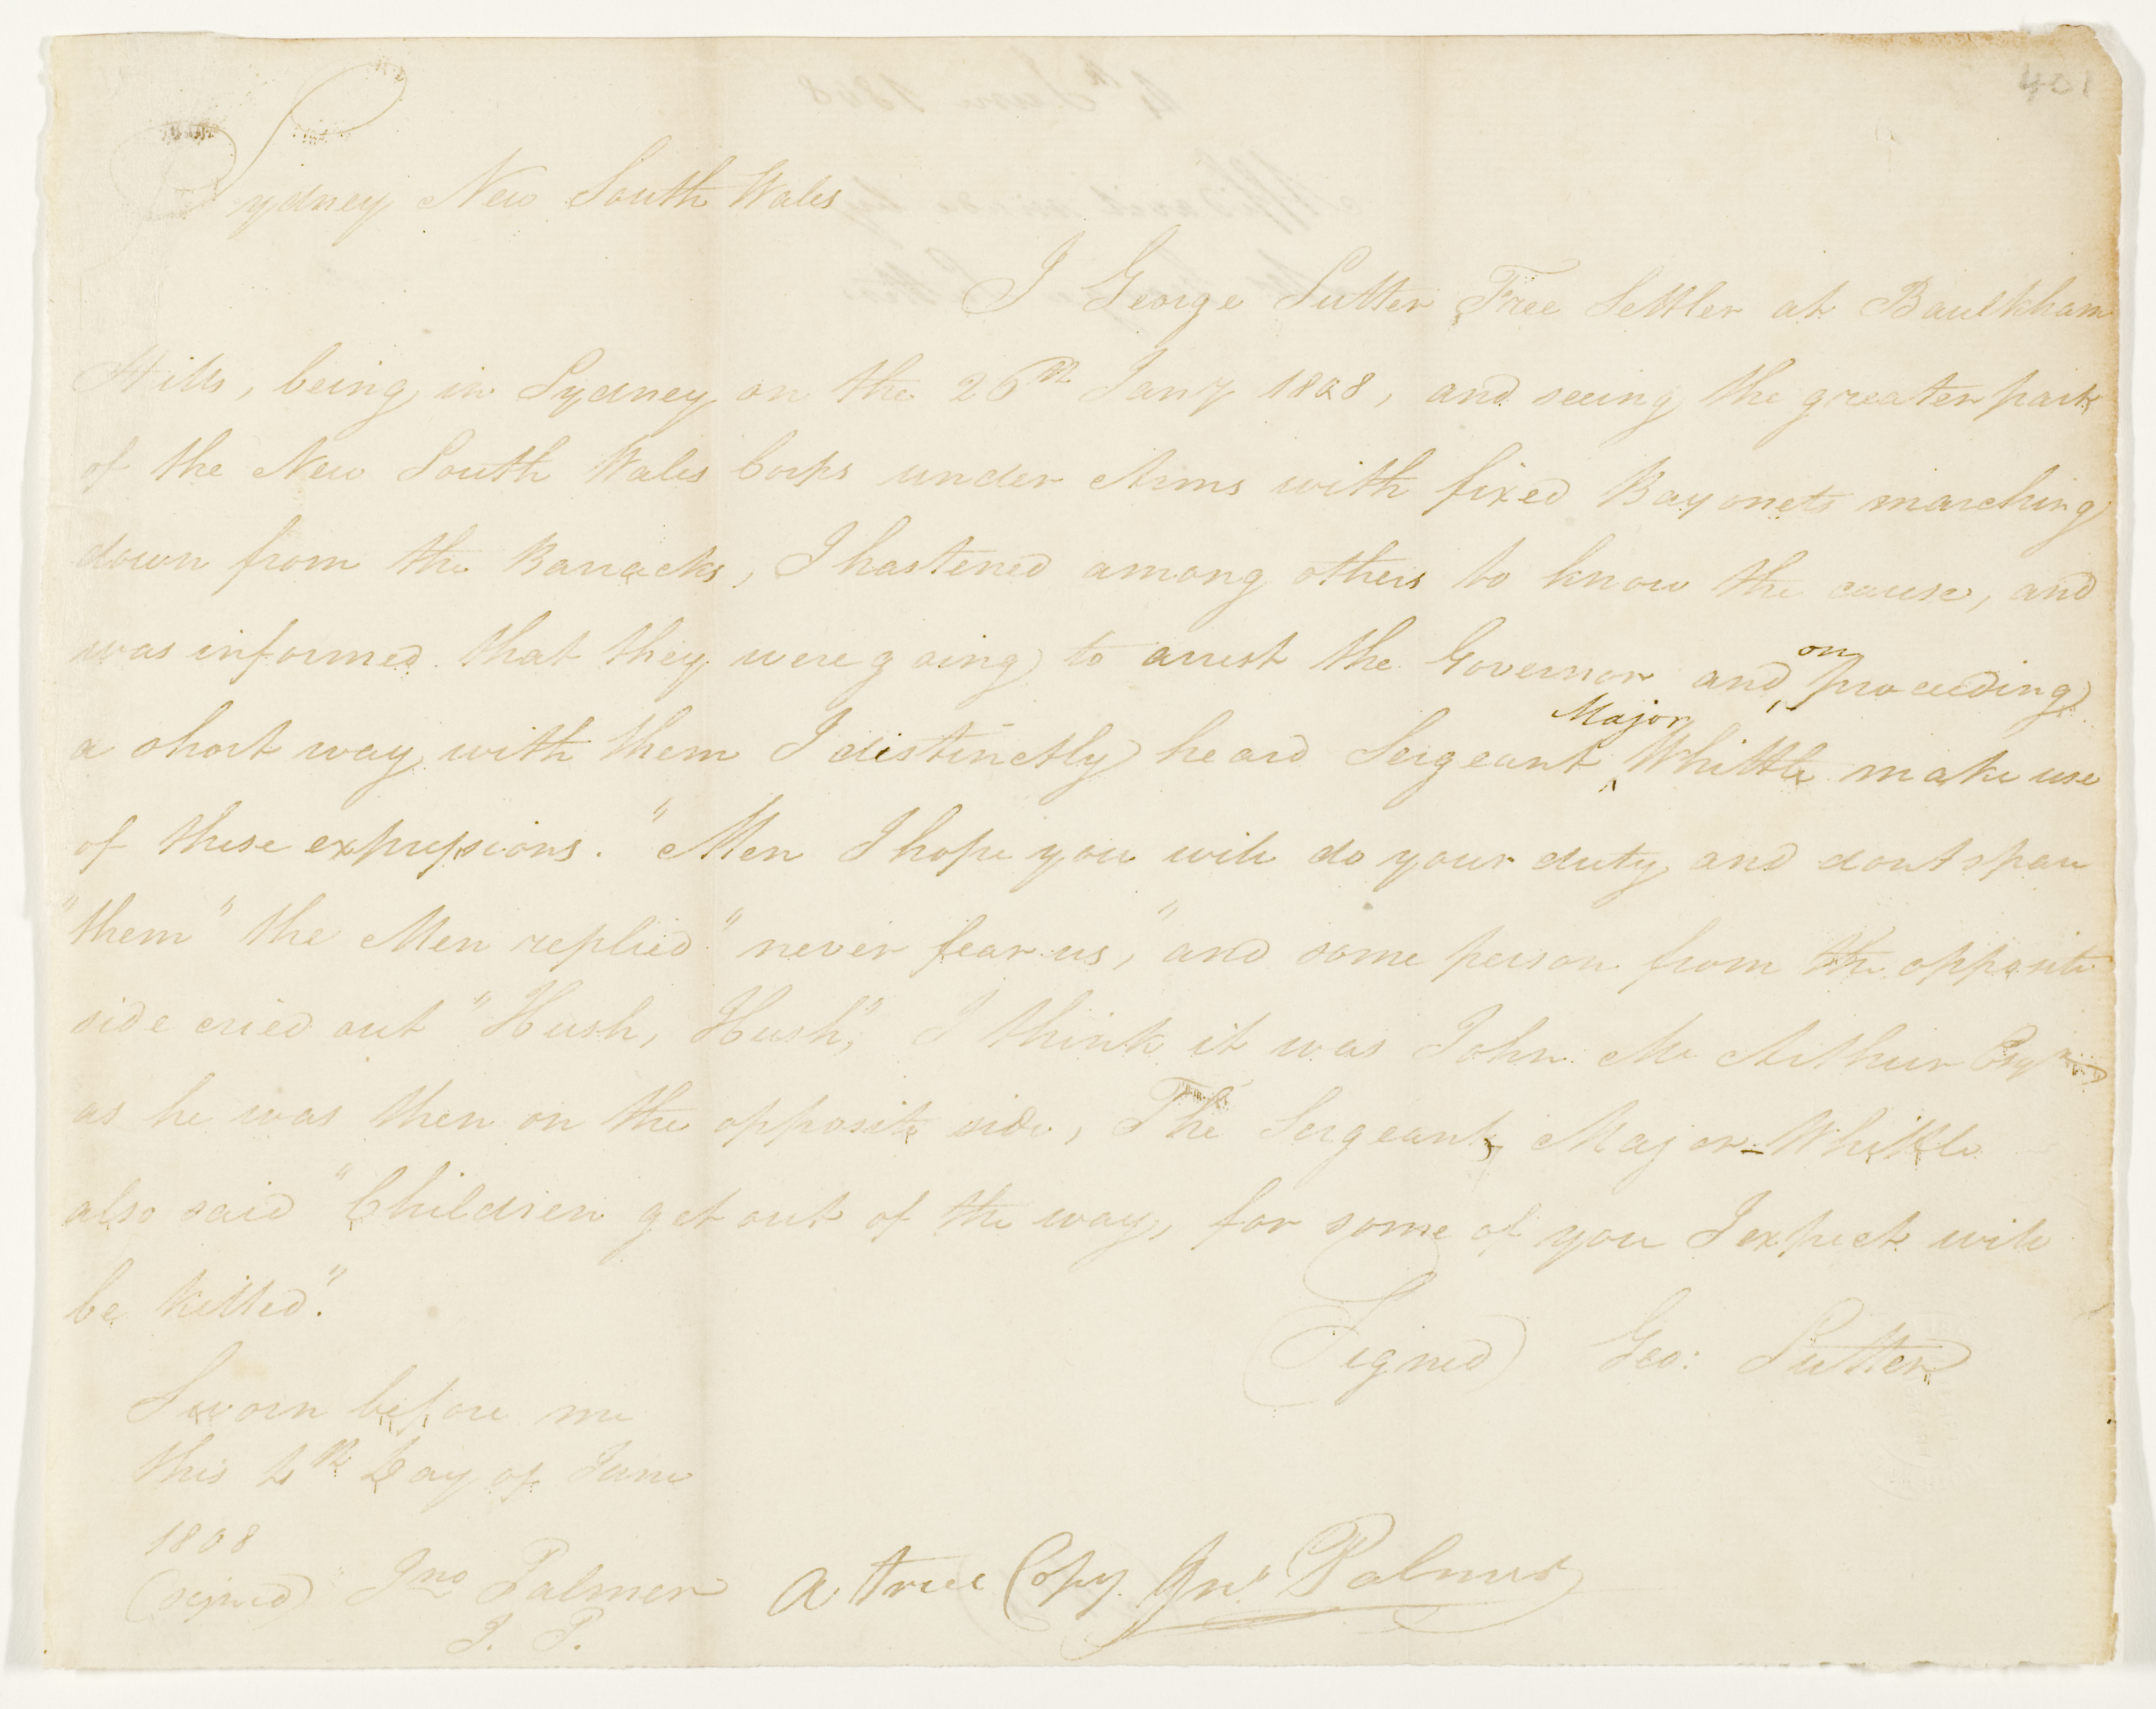 401
Sydney New South Wales
I George Sutter Free Settler at Baulkham
Hills, being in Sydney on the 26th Jany 1808, and seeing the greater part
of the New South Wales Corps under Arms with fixed Bayonets marching
down from the Barracks, I hastened among others to know the cause, and
was informed that they were going to arrest the Governor and on proceeding
a short way with them I distinctly heard Sergeant Major Whittle make use
of these expressions. "Men I hope you will do your duty and dont spare
"them" the Men replied "never fear us," and some person from the opposite
side cried out "Hush, Hush," I think it was John Mc Arthur Esqr
as he was then on the opposite side, The Sergeant Major Whittle
also said "Children get out of the way, for some of you I expect will
be killed".
(Signed) Geo: Sutter
Sworn before me
this 4th Day of June
1808
(signed) Jno Palmer
J. P.
A true Copy. Jno Palmer